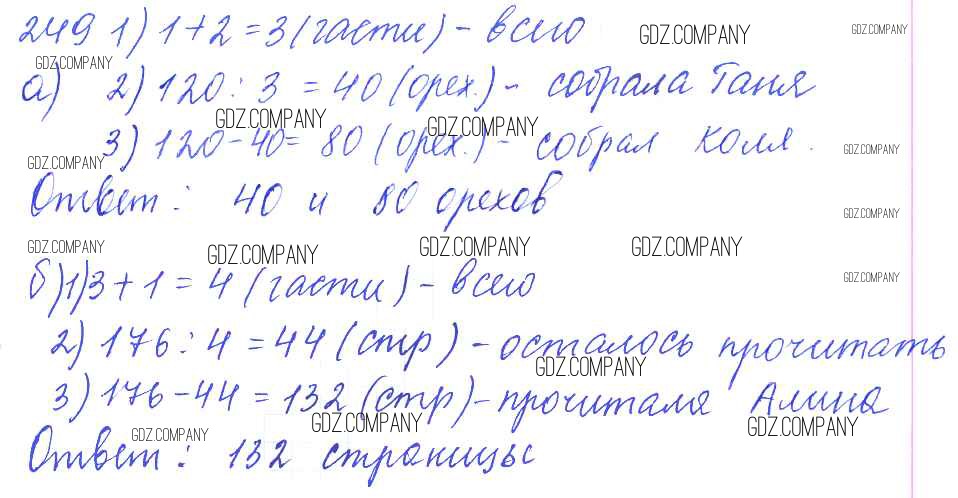 249 1) 1+2=3 (части) - всего
GDZ.COMPANY
GDZ.COMPANY
GDZ.COMPANY
а) 2) 120 : 3 = 40 (орех.) - собрала Таня
GDZ.COMPANY
GDZ.COMPANY
3) 120-40= 80 (орех.) - собрал Коля.
GDZ.COMPANY
GDZ.COMPANY
Ответ: 40 и 80 орехов
GDZ.COMPANY
GDZ.COMPANY
GDZ.COMPANY
GDZ.COMPANY
GDZ.COMPANY
б) 1) 3+1=4 (части) - всего
GDZ.COMPANY
2) 176 : 4 = 44 (стр) - осталось прочитать
GDZ.COMPANY
3) 176-44=132 (стр) - прочитала Алина
GDZ.COMPANY
GDZ.COMPANY
GDZ.COMPANY
Ответ: 132 страницы